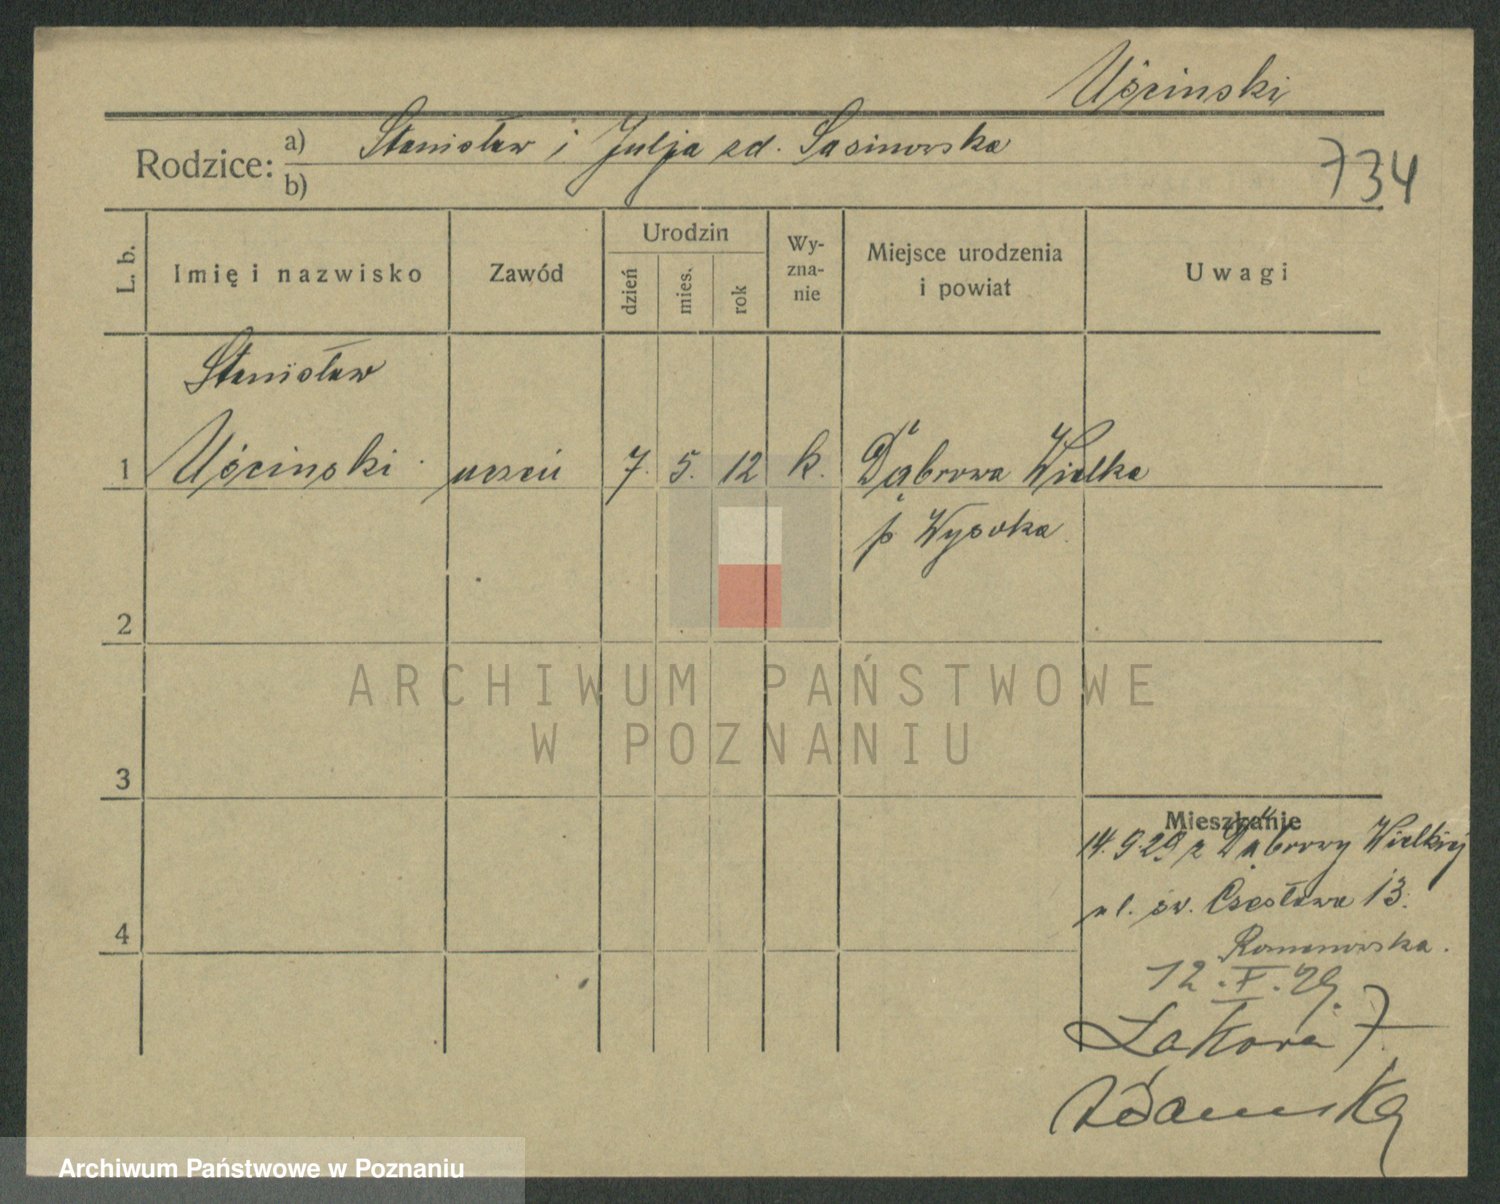 Uścinski
Rodzice: a) Stanisław i Julja zd. Sasinowska
b)
734
L. b.
Imię i nazwisko
Zawód
Urodzin
dzień
mies.
rok
Wy-
zna-
nie
Miejsce urodzenia
i powiat
Uwagi
Stanisław
1 Uścinski uczeń 7. 5. 12 k. Dąbrowa Wielka
p Wysoka
2
ARCHIWUM PAŃSTWOWE
W POZNANIU
3
Mieszkanie
14.9.29 z Dąbrowy Wielkiej
ul. św. Czesława 13.
4
Romanowska.
12.X.29.
Łąkowa 7
Archiwum Państwowe w Poznaniu